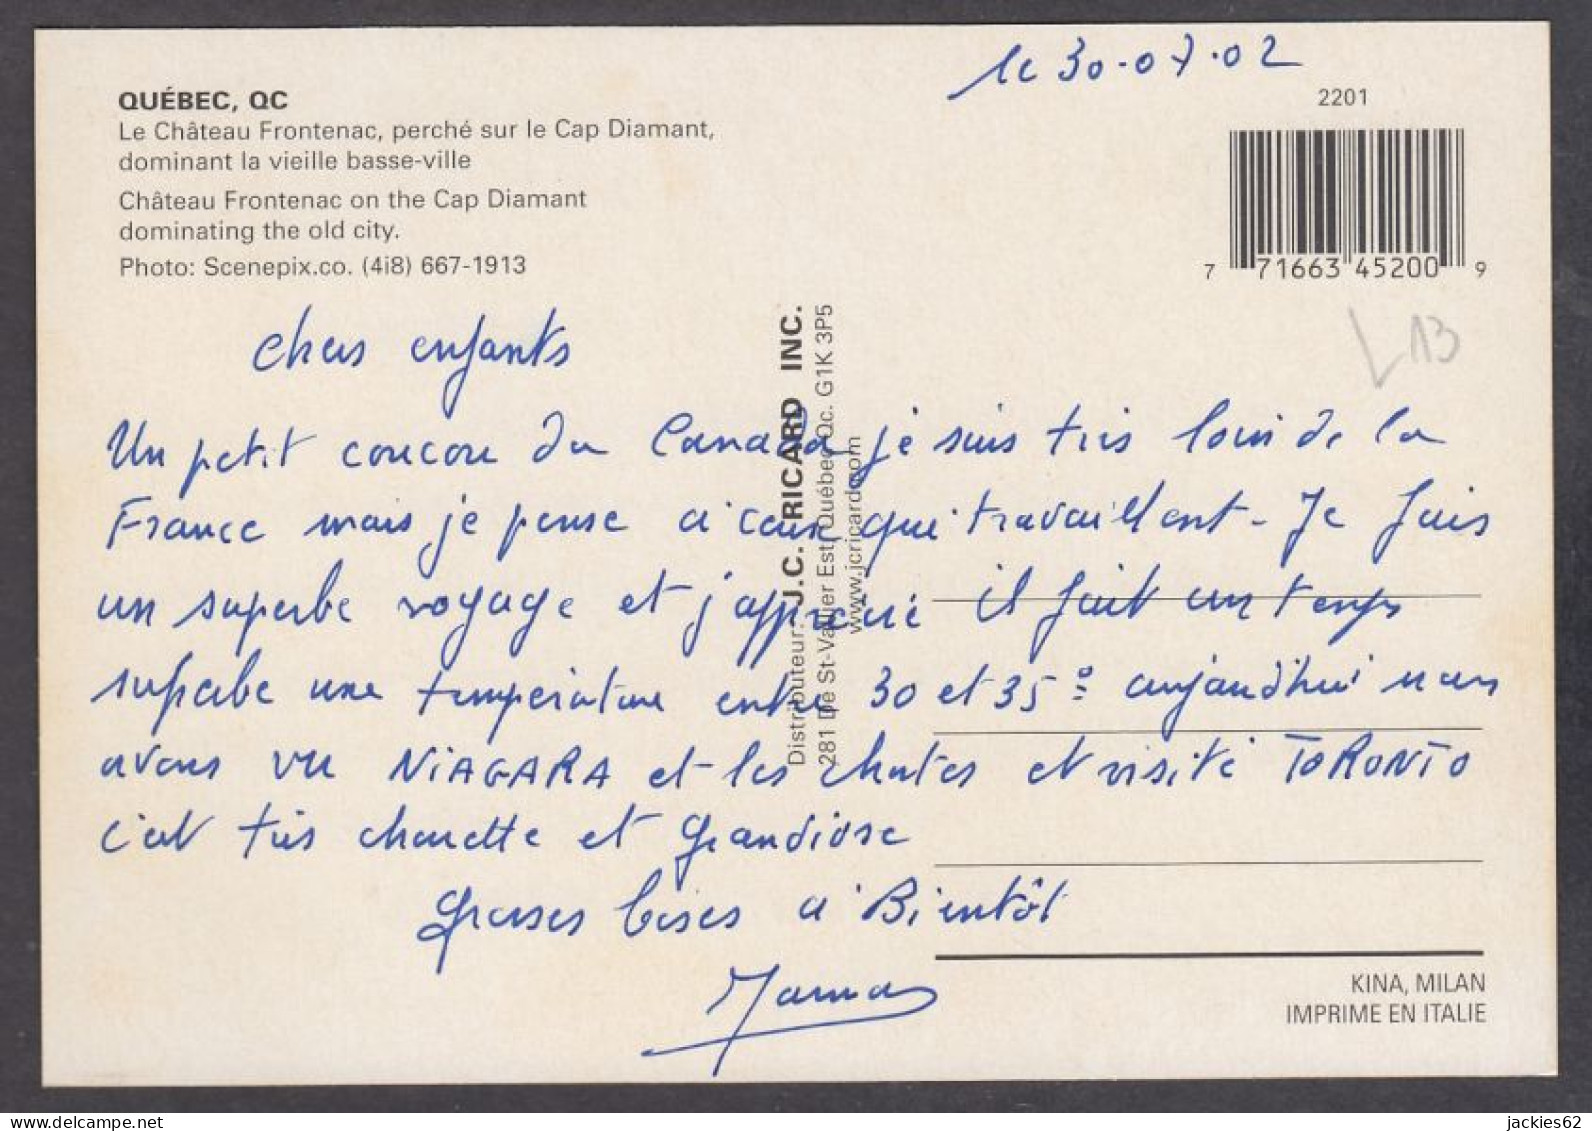 le 30.07.02
QUÉBEC, QC
Le Château Frontenac, perché sur le Cap Diamant,
dominant la vieille basse-ville
Château Frontenac on the Cap Diamant
dominating the old city.
Photo: Scenepix.co. (4i8) 667-1913
2201
7 71663 45200 9
L13
Distributeur: J.C. RICARD INC.
281 De St-Vallier Est, Québec, Qc. G1K 3P5
www.jcricard.com
Chers enfants
Un petit coucou du Canada je suis très loin de la
France mais je pense à ceux qui travaillent - Je fais
un superbe voyage et j'apprécie il fait un temps
superbe une température entre 30 et 35° aujourd'hui nous
avons vu NIAGARA et les chutes et visité TORONTO
c'est très chouette et grandiose
Grosses bises à Bientôt
Maman
KINA, MILAN
IMPRIME EN ITALIE
jackies62